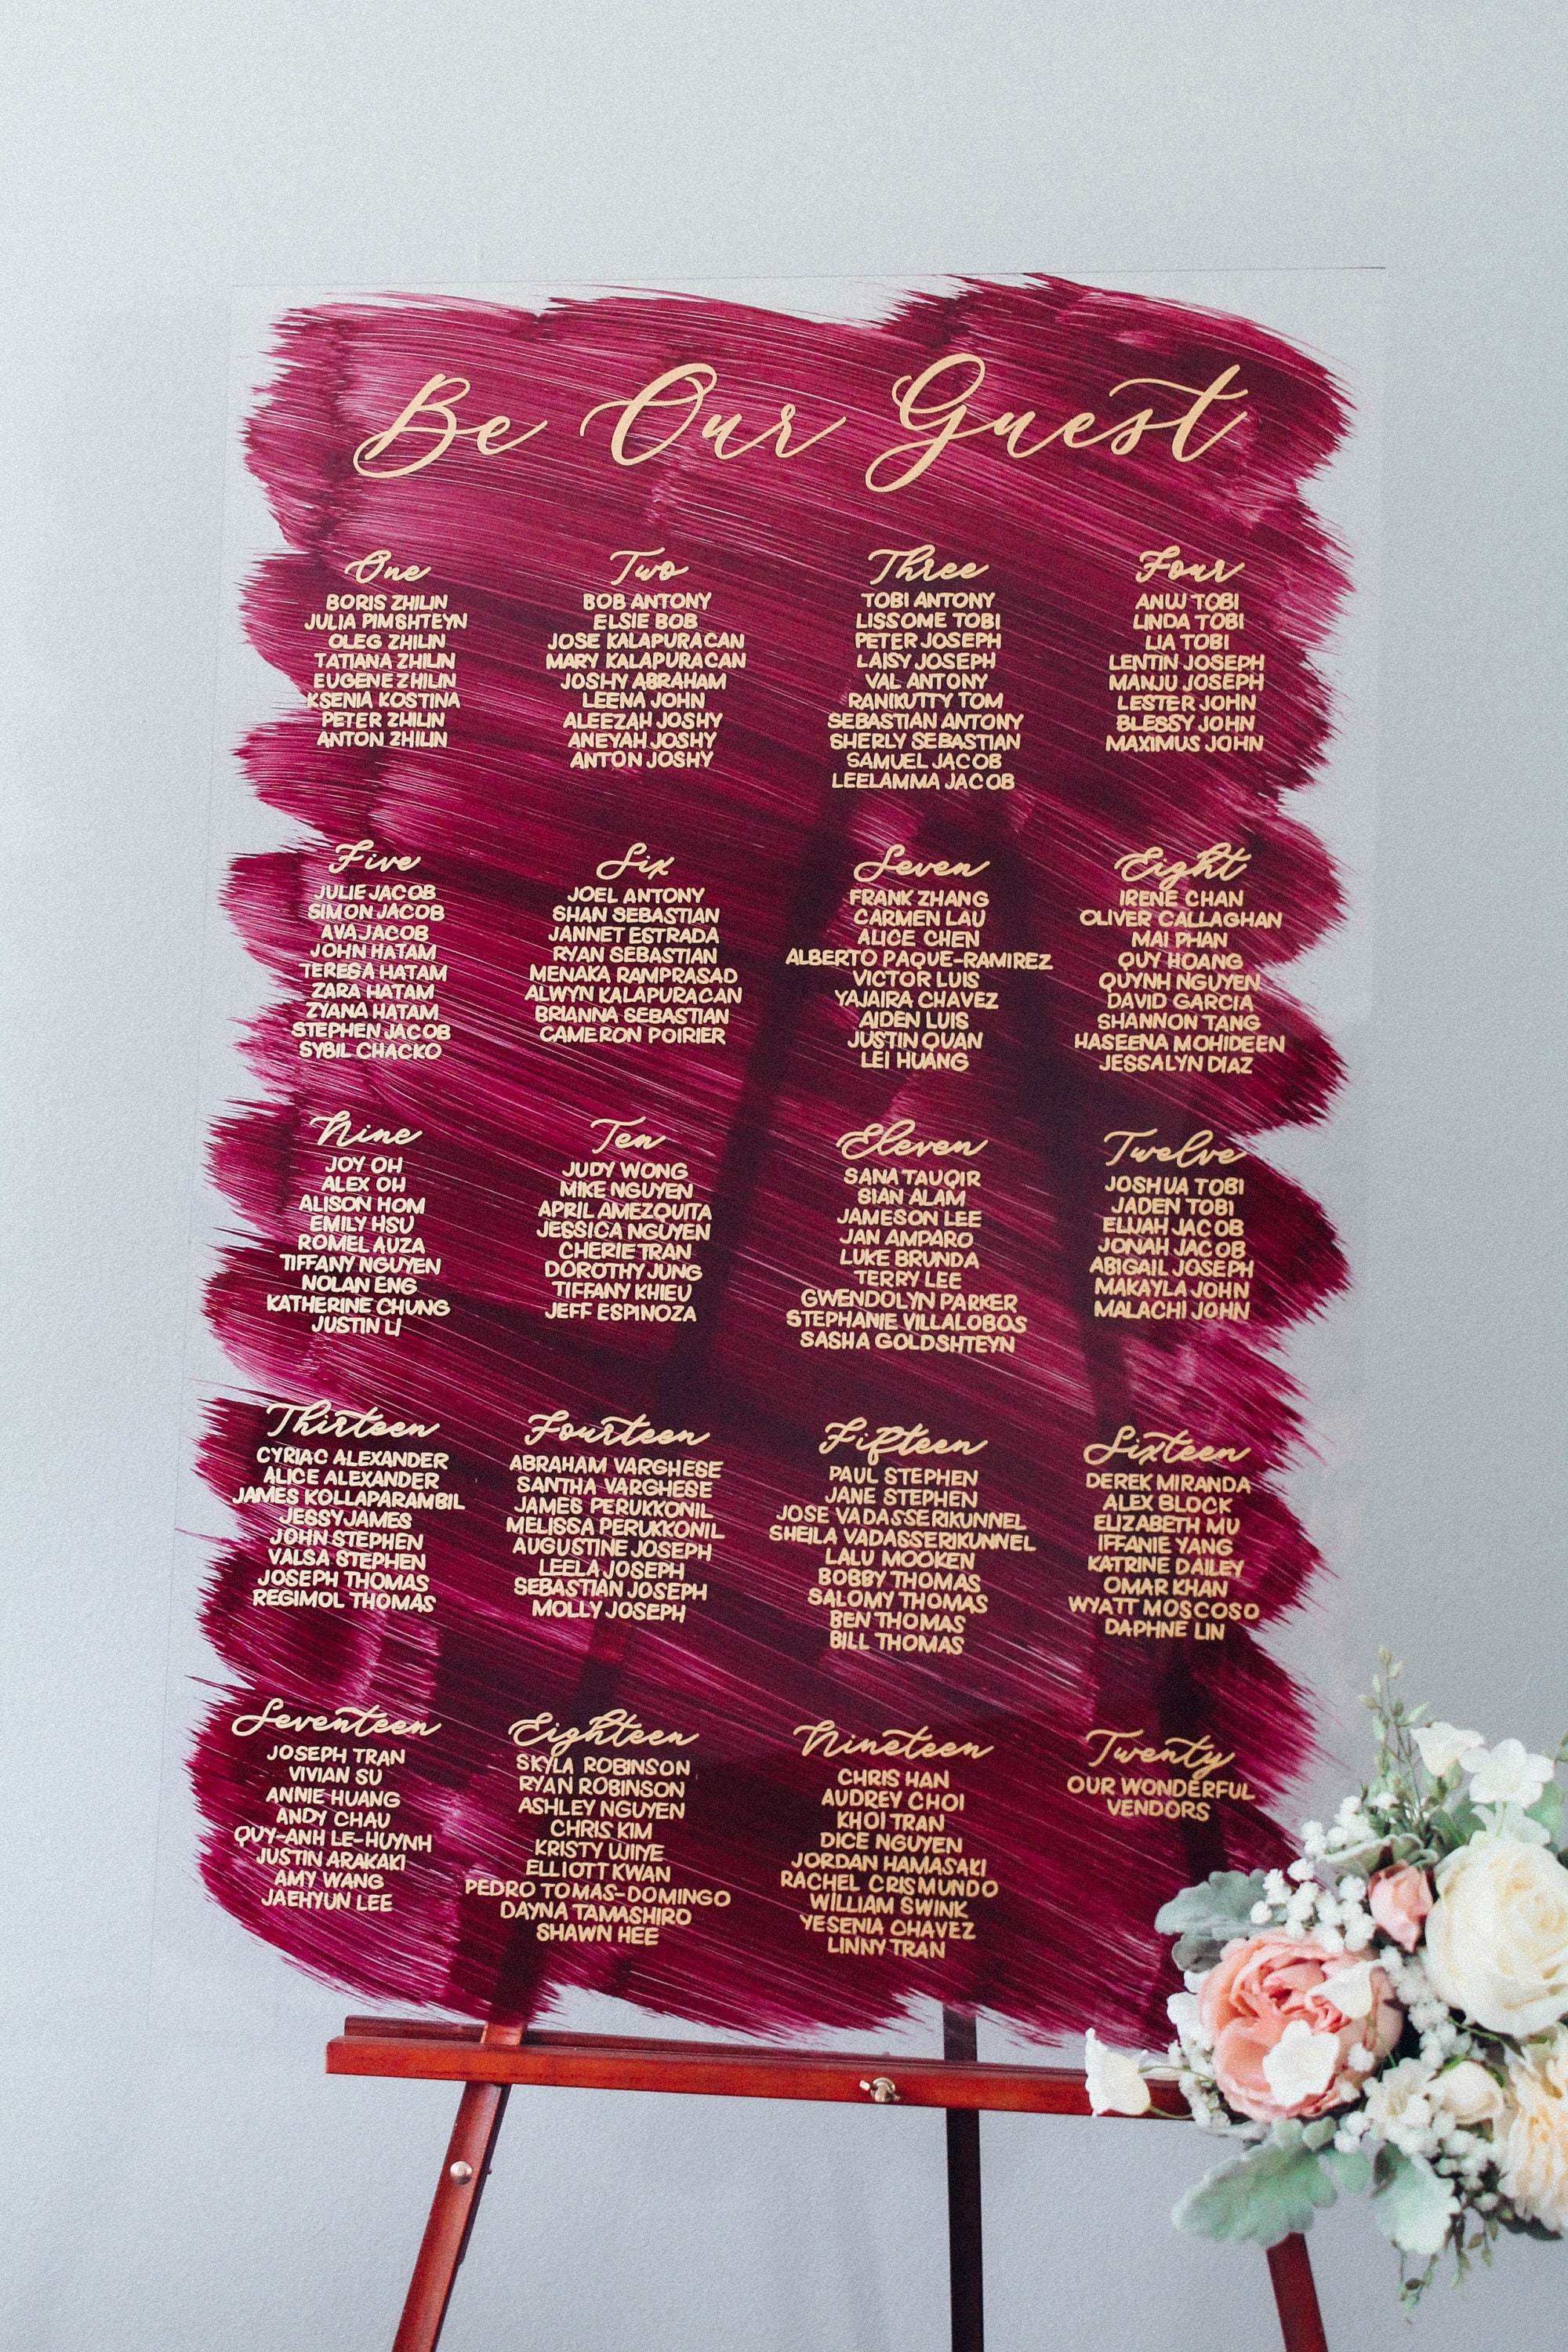 Be Our Guest
One
BORIS ZHILIN
JULIA PIMSHTEYN
OLEG ZHILIN
TATIANA ZHILIN
EUGENE ZHILIN
KSENIA KOSTINA
PETER ZHILIN
ANTON ZHILIN
Two
BOB ANTONY
ELSIE BOB
JOSE KALAPURACAN
MARY KALAPURACAN
JOSHY ABRAHAM
LEENA JOHN
ALEEZAH JOSHY
ANEYAH JOSHY
ANTON JOSHY
Three
TOBI ANTONY
LISSOME TOBI
PETER JOSEPH
LAISY JOSEPH
VAL ANTONY
RANIKUTTY TOM
SEBASTIAN ANTONY
SHERLY SEBASTIAN
SAMUEL JACOB
LEELAMMA JACOB
Four
ANUJ TOBI
LINDA TOBI
LIA TOBI
LENTIN JOSEPH
MANJU JOSEPH
LESTER JOHN
BLESSY JOHN
MAXIMUS JOHN
Five
JULIE JACOB
SIMON JACOB
AVA JACOB
JOHN HATAM
TERESA HATAM
ZARA HATAM
ZYANA HATAM
STEPHEN JACOB
SYBIL CHACKO
Six
JOEL ANTONY
SHAN SEBASTIAN
JANNET ESTRADA
RYAN SEBASTIAN
MENAKA RAMPRASAD
ALWYN KALAPURACAN
BRIANNA SEBASTIAN
CAMERON POIRIER
Seven
FRANK ZHANG
CARMEN LAU
ALICE CHEN
ALBERTO PAQUE-RAMIREZ
VICTOR LUIS
YAJAIRA CHAVEZ
AIDEN LUIS
JUSTIN QUAN
LEI HUANG
Eight
IRENE CHAN
OLIVER CALLAGHAN
MAI PHAN
QUY HOANG
QUYNH NGUYEN
DAVID GARCIA
SHANNON TANG
HASEENA MOHIDEEN
JESSALYN DIAZ
Nine
JOY OH
ALEX OH
ALISON HOM
EMILY HSU
ROMEL AUZA
TIFFANY NGUYEN
NOLAN ENG
KATHERINE CHUNG
JUSTIN LI
Ten
JUDY WONG
MIKE NGUYEN
APRIL AMEZQUITA
JESSICA NGUYEN
CHERIE TRAN
DOROTHY JUNG
TIFFANY KHIEU
JEFF ESPINOZA
Eleven
SANA TAUQIR
SIAN ALAM
JAMESON LEE
JAN AMPARO
LUKE BRUNDA
TERRY LEE
GWENDOLYN PARKER
STEPHANIE VILLALOBOS
SASHA GOLDSHTEYN
Twelve
JOSHUA TOBI
JADEN TOBI
ELIJAH JACOB
JONAH JACOB
ABIGAIL JOSEPH
MAKAYLA JOHN
MALACHI JOHN
Thirteen
CYRIAC ALEXANDER
ALICE ALEXANDER
JAMES KOLLAPARAMBIL
JESSY JAMES
JOHN STEPHEN
VALSA STEPHEN
JOSEPH THOMAS
REGIMOL THOMAS
Fourteen
ABRAHAM VARGHESE
SANTHA VARGHESE
JAMES PERUKKONIL
MELISSA PERUKKONIL
AUGUSTINE JOSEPH
LEELA JOSEPH
SEBASTIAN JOSEPH
MOLLY JOSEPH
Fifteen
PAUL STEPHEN
JANE STEPHEN
JOSE VADASSERIKUNNEL
SHEILA VADASSERIKUNNEL
LALU MOOKEN
BOBBY THOMAS
SALOMY THOMAS
BEN THOMAS
BILL THOMAS
Sixteen
DEREK MIRANDA
ALEX BLOCK
ELIZABETH MU
IFFANIE YANG
KATRINE DAILEY
OMAR KHAN
WYATT MOSCOSO
DAPHNE LIN
Seventeen
JOSEPH TRAN
VIVIAN SU
ANNIE HUANG
ANDY CHAU
QUY-ANH LE-HUYNH
JUSTIN ARAKAKI
AMY WANG
JAEHYUN LEE
Eighteen
SKYLA ROBINSON
RYAN ROBINSON
ASHLEY NGUYEN
CHRIS KIM
KRISTY UJIIYE
ELLIOTT KWAN
PEDRO TOMAS-DOMINGO
DAYNA TAMASHIRO
SHAWN HEE
Nineteen
CHRIS HAN
AUDREY CHOI
KHOI TRAN
DICE NGUYEN
JORDAN HAMASAKI
RACHEL CRISMUNDO
WILLIAM SWINK
YESENIA CHAVEZ
LINNY TRAN
Twenty
OUR WONDERFUL
VENDORS